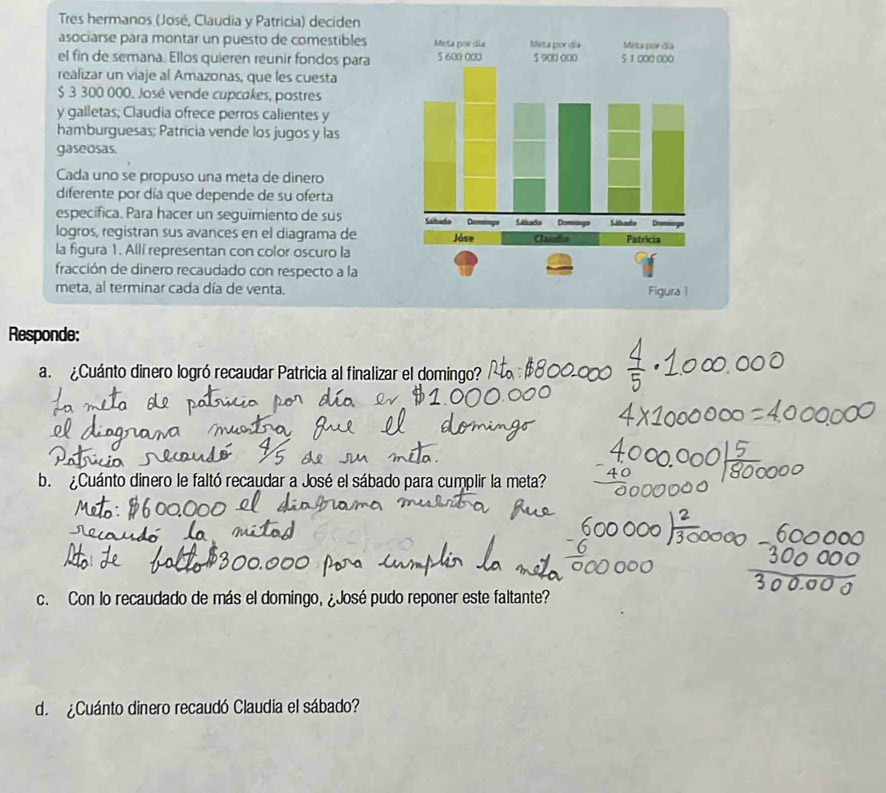 Tres hermanos (José, Claudia y Patricia) deciden
asociarse para montar un puesto de comestibles
el fin de semana. Ellos quieren reunir fondos para
realizar un viaje al Amazonas, que les cuesta
$ 3 300 000. José vende cupcakes, postres
y galletas; Claudia ofrece perros calientes y
hamburguesas; Patricia vende los jugos y las
gaseosas.
Cada uno se propuso una meta de dinero
diferente por día que depende de su oferta
específica. Para hacer un seguimiento de sus
logros, registran sus avances en el diagrama de
la figura 1. Allí representan con color oscuro la
fracción de dinero recaudado con respecto a la
meta, al terminar cada día de venta.
Meta por día Meta por día Meta por día
$ 600 000 $ 900 000 $ 1 000 000
Sábado Domingo Sábado Domingo Sábado Domingo
Jóse Claudia Patricia
Figura 1
Responde:
a. ¿Cuánto dinero logró recaudar Patricia al finalizar el domingo? Rta: $800.000
4/5 · 1.000.000
La meta de patricia por día er $1.000.000
el diagrana muestra que el domingo
Patricia recaudó 4/5 de su meta.
4x1000000=4.000,000
4.000.000 5
-40 800000
0000000
b. ¿Cuánto dinero le faltó recaudar a José el sábado para cumplir la meta?
Meta: $600.000 el diagrama muestra que
recaudó la mitad
Rta: le falto $300.000 para cumplir la meta
600 000 2
-6 300000
000 000
-600000
300 000
300.000
c. Con lo recaudado de más el domingo, ¿José pudo reponer este faltante?
d. ¿Cuánto dinero recaudó Claudia el sábado?